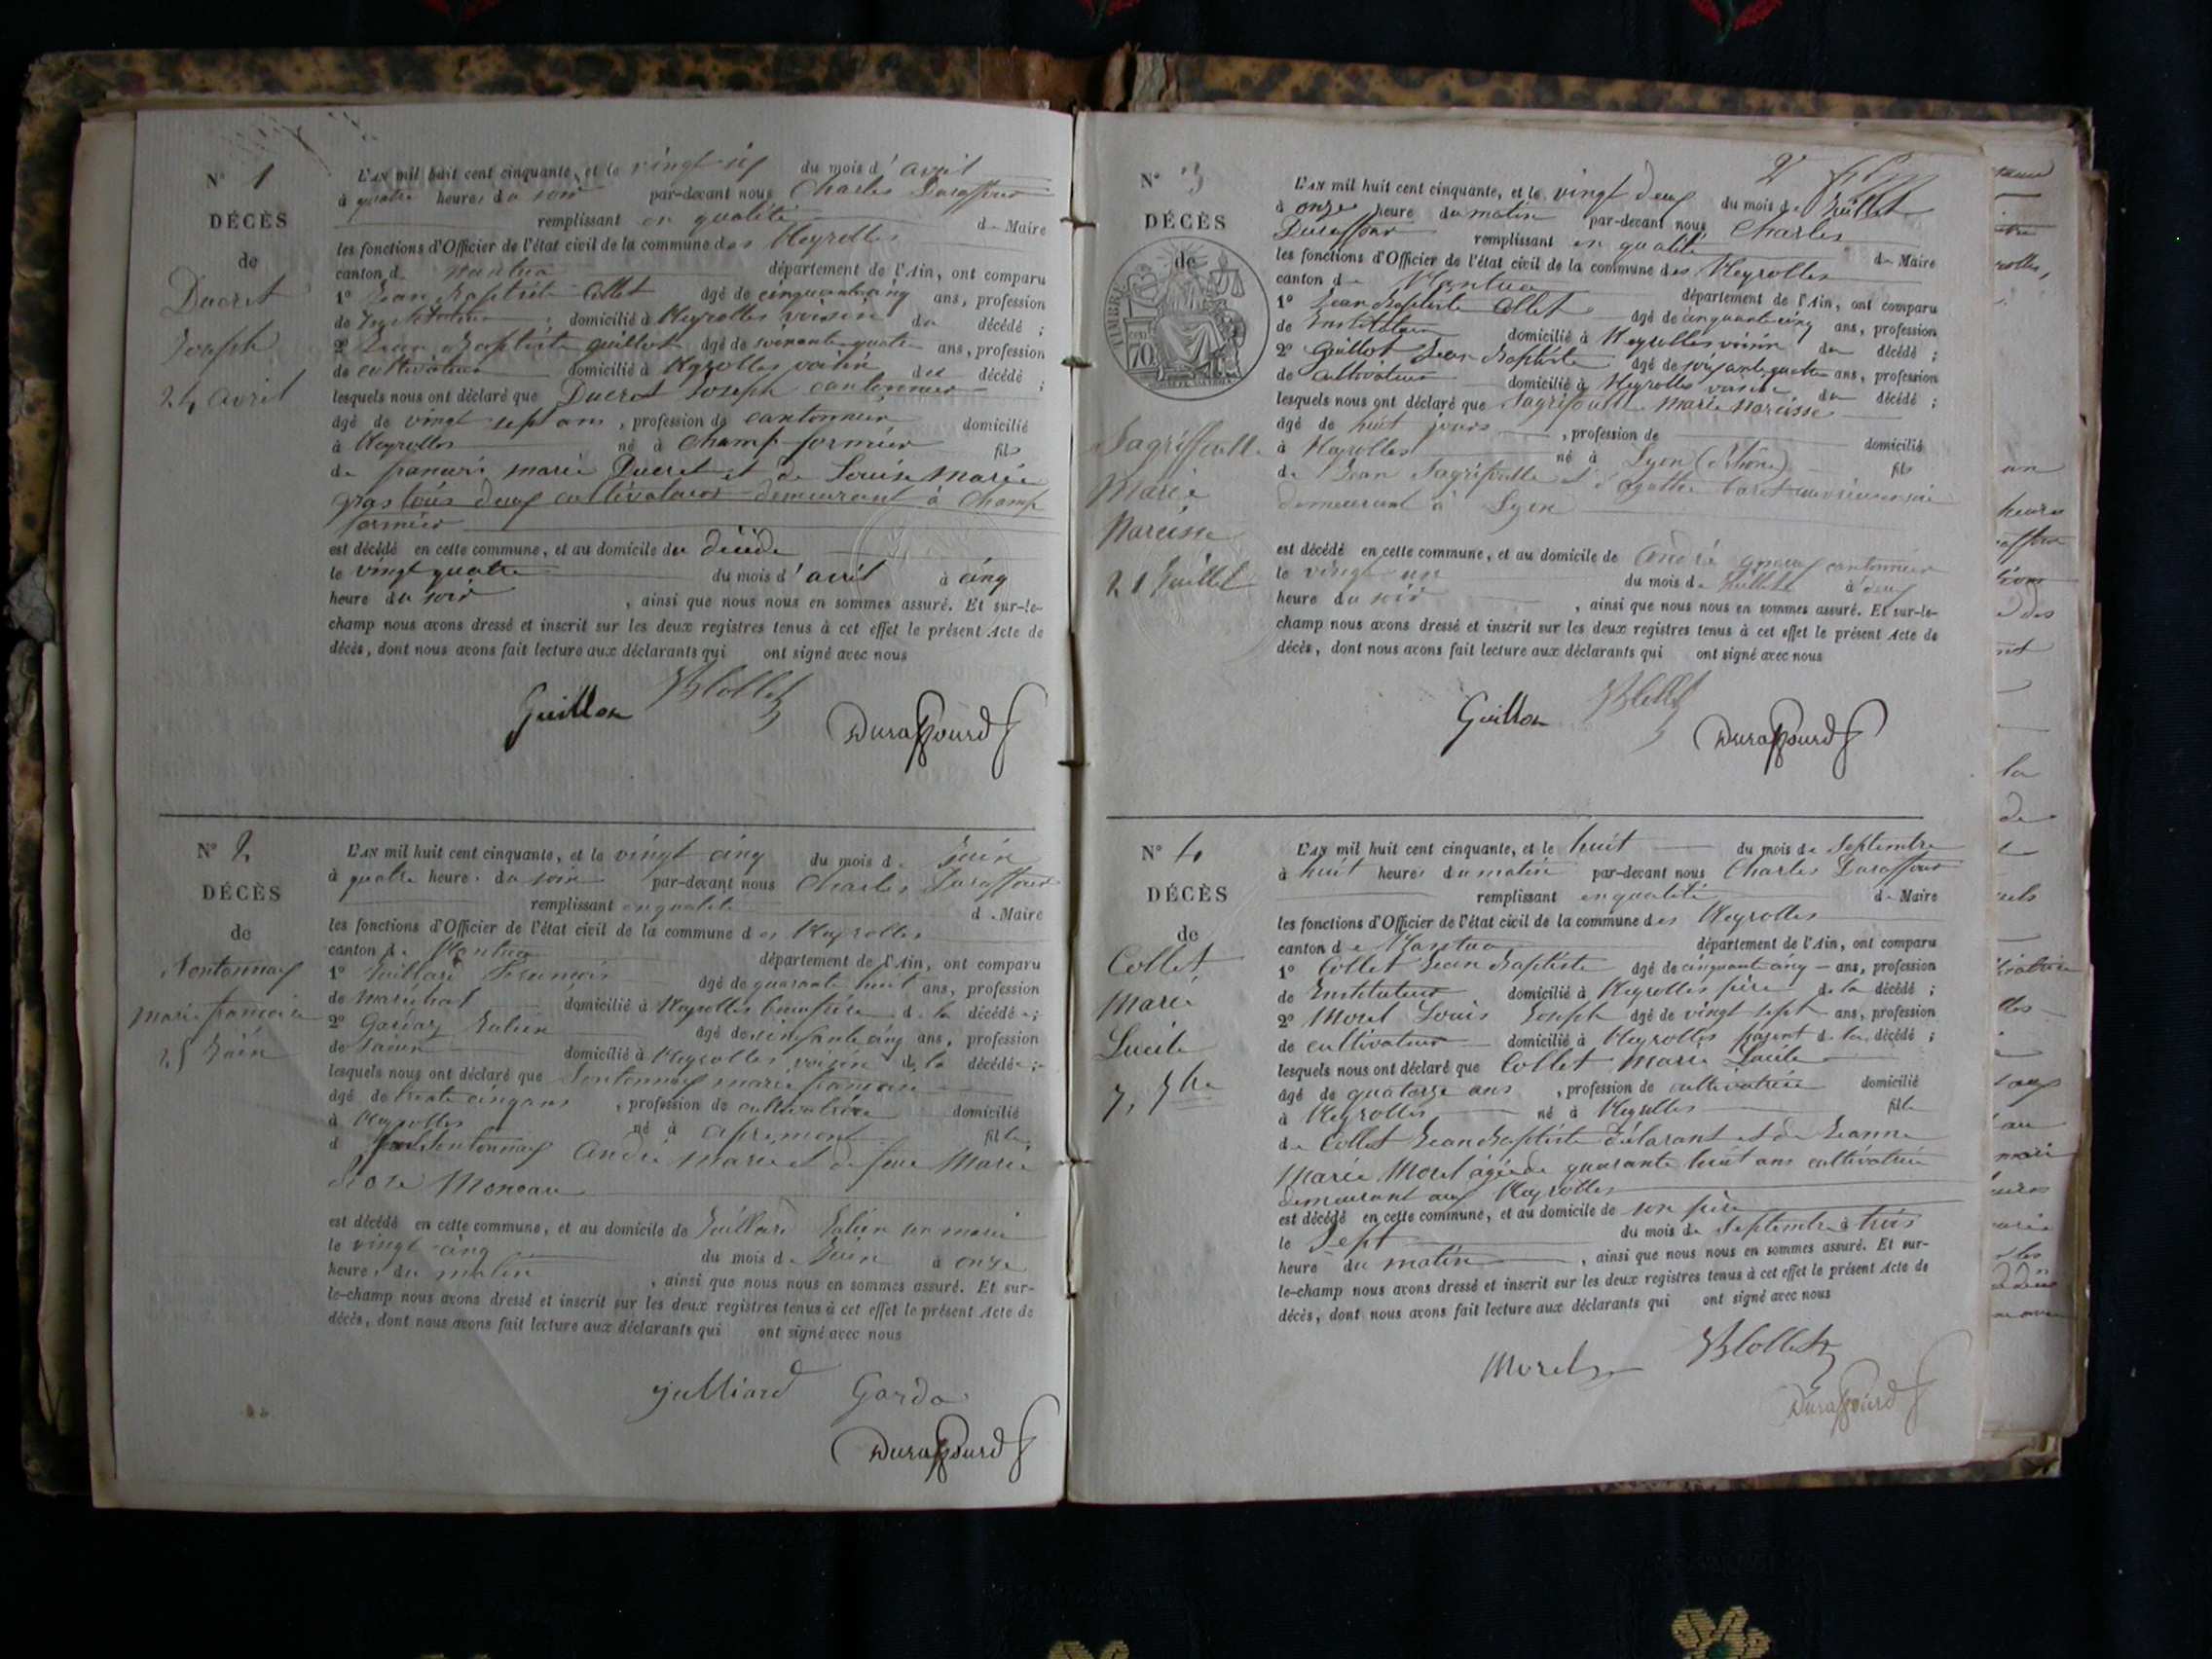 N° 1
DÉCÈS
de
Ducret
Joseph
24 avril
L'AN mil huit cent cinquante, et le vingt six du mois d'avril
à quatre heures du soir par-devant nous Charles Duraffour
remplissant en qualité de Maire
les fonctions d'Officier de l'état civil de la commune des Neyrolles
canton de Nantua département de l'Ain, ont comparu
1° Jean Baptiste Collet âgé de cinquante cinq ans, profession
de Instituteur domicilié à Neyrolles voisin du décédé ;
2° Jean Baptiste Guillot âgé de soixante quatre ans, profession
de cultivateur domicilié à Neyrolles voisin du décédé ;
lesquels nous ont déclaré que Ducret Joseph cantonnier
âgé de vingt sept ans, profession de cantonnier domicilié
à Neyrolles né à Champ-formier fils
de Marie Ducret et de Louise Marie
gras tous deux cultivateurs demeurant à Champ
formier
est décédé en cette commune, et au domicile du décédé
le vingt quatre du mois d'avril à cinq
heure du soir, ainsi que nous nous en sommes assuré. Et sur-le-
champ nous avons dressé et inscrit sur les deux registres tenus à cet effet le présent Acte de
décès, dont nous avons fait lecture aux déclarants qui ont signé avec nous
Guillon JBCollet
Duraffourd
N° 2
DÉCÈS
de
marie françoise
25 Juin
L'AN mil huit cent cinquante, et le vingt cinq du mois de Juin
à quatre heure du soir par-devant nous Charles Duraffour
remplissant en qualité de Maire
les fonctions d'Officier de l'état civil de la commune des Neyrolles
canton de Nantua département de l'Ain, ont comparu
1° Juillard François âgé de quarante huit ans, profession
de maréchal domicilié à Neyrolles beau frère de la décédée ;
2° Julien âgé de cinq ans, profession
de domicilié à Neyrolles voisin de la décédée ;
lesquels nous ont déclaré que marie françoise
âgé de trente cinq ans, profession de cultivatrice domicilié
à Neyrolles né à apremont fille
d André Marie et de feue Marie
Rose Moncau
est décédé en cette commune, et au domicile de Juillard Julien son mari
le vingt cinq du mois de Juin à onze
heure du matin, ainsi que nous nous en sommes assuré. Et sur-
le-champ nous avons dressé et inscrit sur les deux registres tenus à cet effet le présent Acte de
décès, dont nous avons fait lecture aux déclarants qui ont signé avec nous
Julliard Garda
Duraffourd
2
N° 3
DÉCÈS
de
TIMBRE
70
Marie
Narcisse
21 Juillet
L'AN mil huit cent cinquante, et le vingt deux du mois de Juillet
à onze heure du matin par-devant nous Charles
Duraffour remplissant en qualité de Maire
les fonctions d'Officier de l'état civil de la commune des Neyrolles
canton de Nantua département de l'Ain, ont comparu
1° Jean Baptiste Collet âgé de cinquante cinq ans, profession
de Instituteur domicilié à Neyrolles voisin du décédé ;
2° Guillot Jean Baptiste âgé de soixante quatre ans, profession
de cultivateur domicilié à Neyrolles voisin du décédé ;
lesquels nous ont déclaré que Marie Narcisse
âgé de huit jours, profession de domicilié
à Neyrolles né à Lyon (Rhône) fils
de Jean et d'agathe
demeurant à Lyon
est décédé en cette commune, et au domicile de André cantonnier
le vingt un du mois de Juillet à deux
heure du soir, ainsi que nous nous en sommes assuré. Et sur-le-
champ nous avons dressé et inscrit sur les deux registres tenus à cet effet le présent Acte de
décès, dont nous avons fait lecture aux déclarants qui ont signé avec nous
Guillon JBCollet
Duraffourd
N° 4
DÉCÈS
de
Collet
Marie
Lucile
7, 7bre
L'AN mil huit cent cinquante, et le huit du mois de Septembre
à huit heures du matin par-devant nous Charles Duraffour
remplissant en qualité de Maire
les fonctions d'Officier de l'état civil de la commune des Neyrolles
canton de Nantua département de l'Ain, ont comparu
1° Collet Jean Baptiste âgé de cinquante cinq ans, profession
de Instituteur domicilié à Neyrolles père de la décédé ;
2° Morel Louis Joseph âgé de vingt sept ans, profession
de cultivateur domicilié à Neyrolles parent de la décédé ;
lesquels nous ont déclaré que Collet Marie Lucile
âgé de quatorze ans, profession de cultivatrice domicilié
à Neyrolles né à Neyrolles fille
de Collet Jean Baptiste déclarant et de Jeanne
Marie Morel âgée de quarante huit ans cultivatrice
demeurant aux Neyrolles
est décédé en cette commune, et au domicile de son père
le Sept du mois de Septembre à trois
heure du matin, ainsi que nous nous en sommes assuré. Et sur-
le-champ nous avons dressé et inscrit sur les deux registres tenus à cet effet le présent Acte de
décès, dont nous avons fait lecture aux déclarants qui ont signé avec nous
Morel JBCollet
Duraffourd